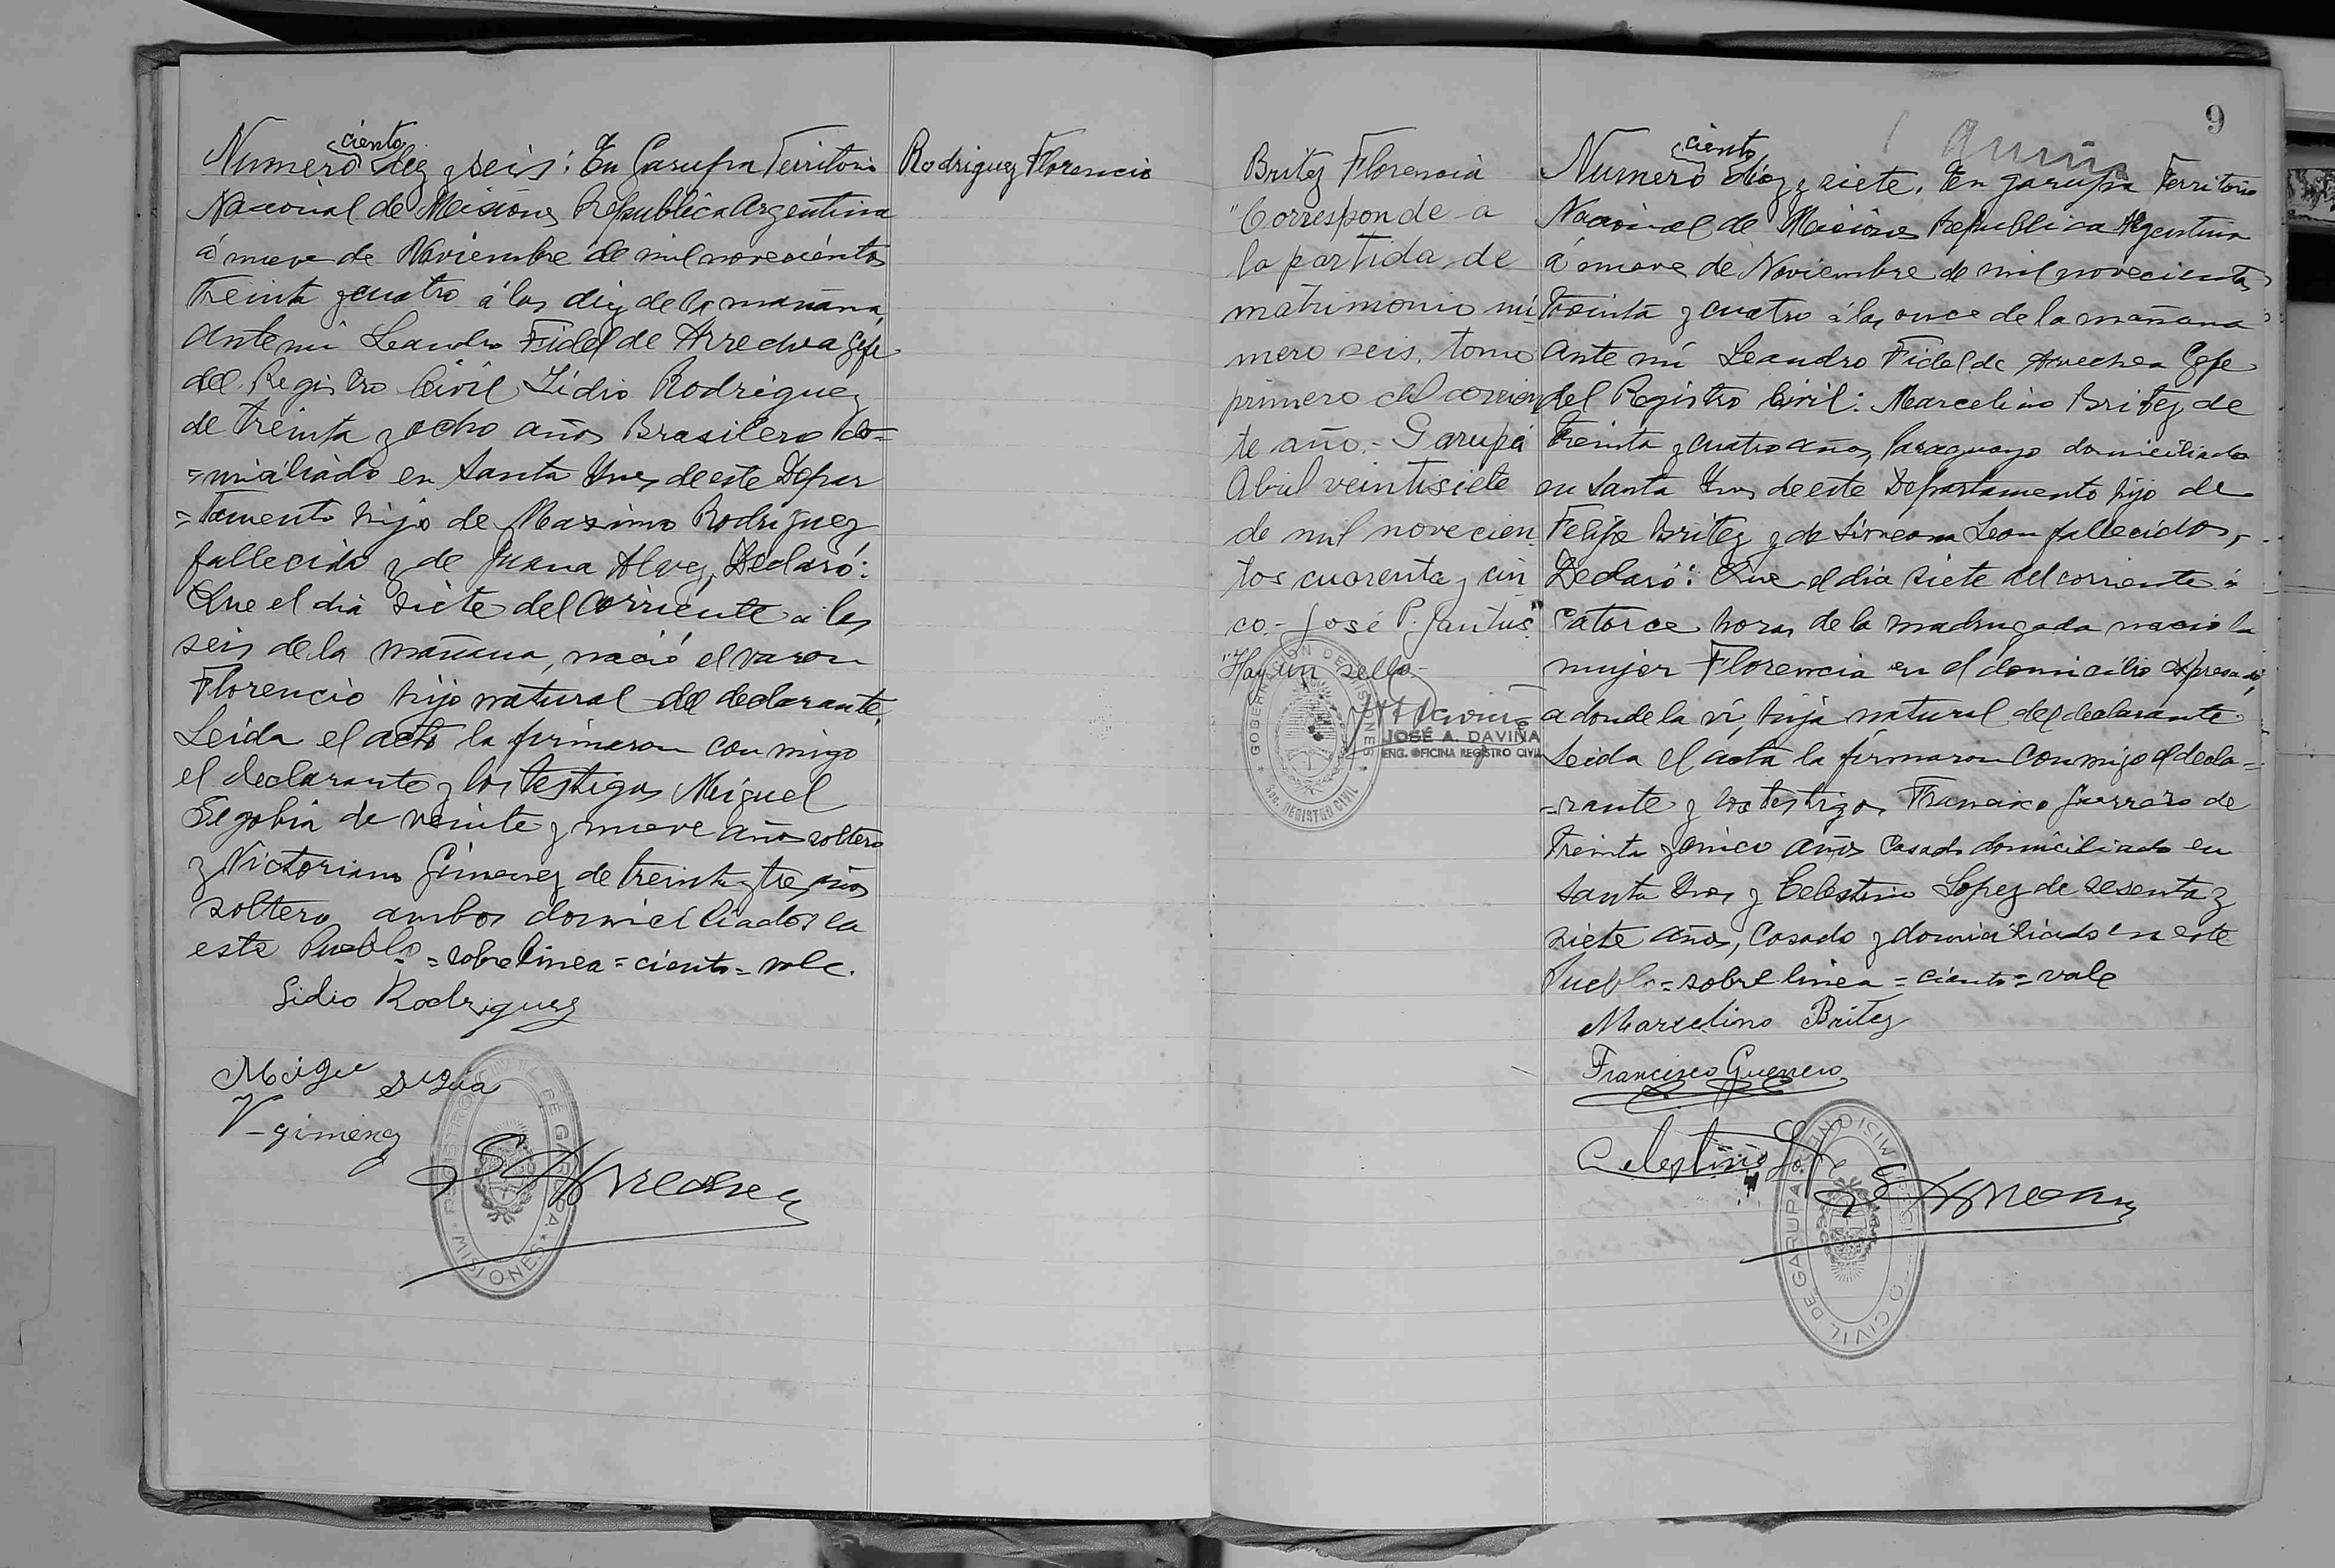 ciento
Numero diez y seis: En Garupa Territorio
Nacional de Misiones Republica Argentina
á nueve de Noviembre de mil novecientos
treinta y cuatro á las diez de la mañana,
ante mi Leandro Fidel de Arrechea Gefe
del Registro Civil Lidio Rodriguez
de treinta y ocho años Brasilero do=
=miciliado en Santa Ynes de este Depar
=tamento hijo de Maximo Rodriguez
fallecido y de Juana Alvez, Declaró:
Que el dia siete del corriente a las
seis de la mañana, nació el varon
Florencio hijo natural del declarante,
Leida el acta la firmaron con migo
el declarante y los testigos Miguel
Segobia de veinte y nueve años soltero
y Victoriano Gimenez de treinta y tres años
soltero ambos domiciliados en
este Pueblo = sobre linea = ciento = vale.
Lidio Rodriguez
Migue
V-gimenez
REGISTRO CIVIL DE GARUPA
MISIONES
Rodriguez Florencio
Britez Florencia
"Corresponde a
la partida de
matrimonio nú-
mero seis, tomo
primero del corrien
te año.- Garupá
Abril veintisiete
de mil novecien
tos cuarenta y cin
co.- José P. Jantus"
"Hay un sello-
GOBERNACION DE MISIONES
REGISTRO CIVIL
JOSÉ A. DAVIÑA
ENC. OFICINA REGISTRO CIVIL
9
ciento
Numero diez y siete. En garupa Territorio
Nacional de Misiones Republica Argentina
á nueve de Noviembre de mil novecientos
treinta y cuatro á las once de la mañana
ante mi Leandro Fidel de Arrechea Gefe
del Registro Civil: Marcelino Britez de
treinta y cuatro años, Paraguayo domiciliado
en Santa Ynes de este Departamento hijo de
Felipe Britez y de Simeona Leon fallecidos,
Declaró: Que el dia siete del corriente á
catorce horas de la madrugada nacio la
mujer Florencia en el domicilio expresado,
a donde la ví, hija natural del declarante.
Leida el acta la firmaron con migo el decla=
=rante y los testigos Francisco Guerrero de
treinta y cinco años casado domiciliado en
Santa Ynes y Celestino Lopez de sesenta y
siete años, Casado y domiciliado en este
Pueblo = sobre linea = ciento = vale
Marcelino Britez
Francisco Guerrero
Celestino
REGISTRO CIVIL DE GARUPA
MISIONES